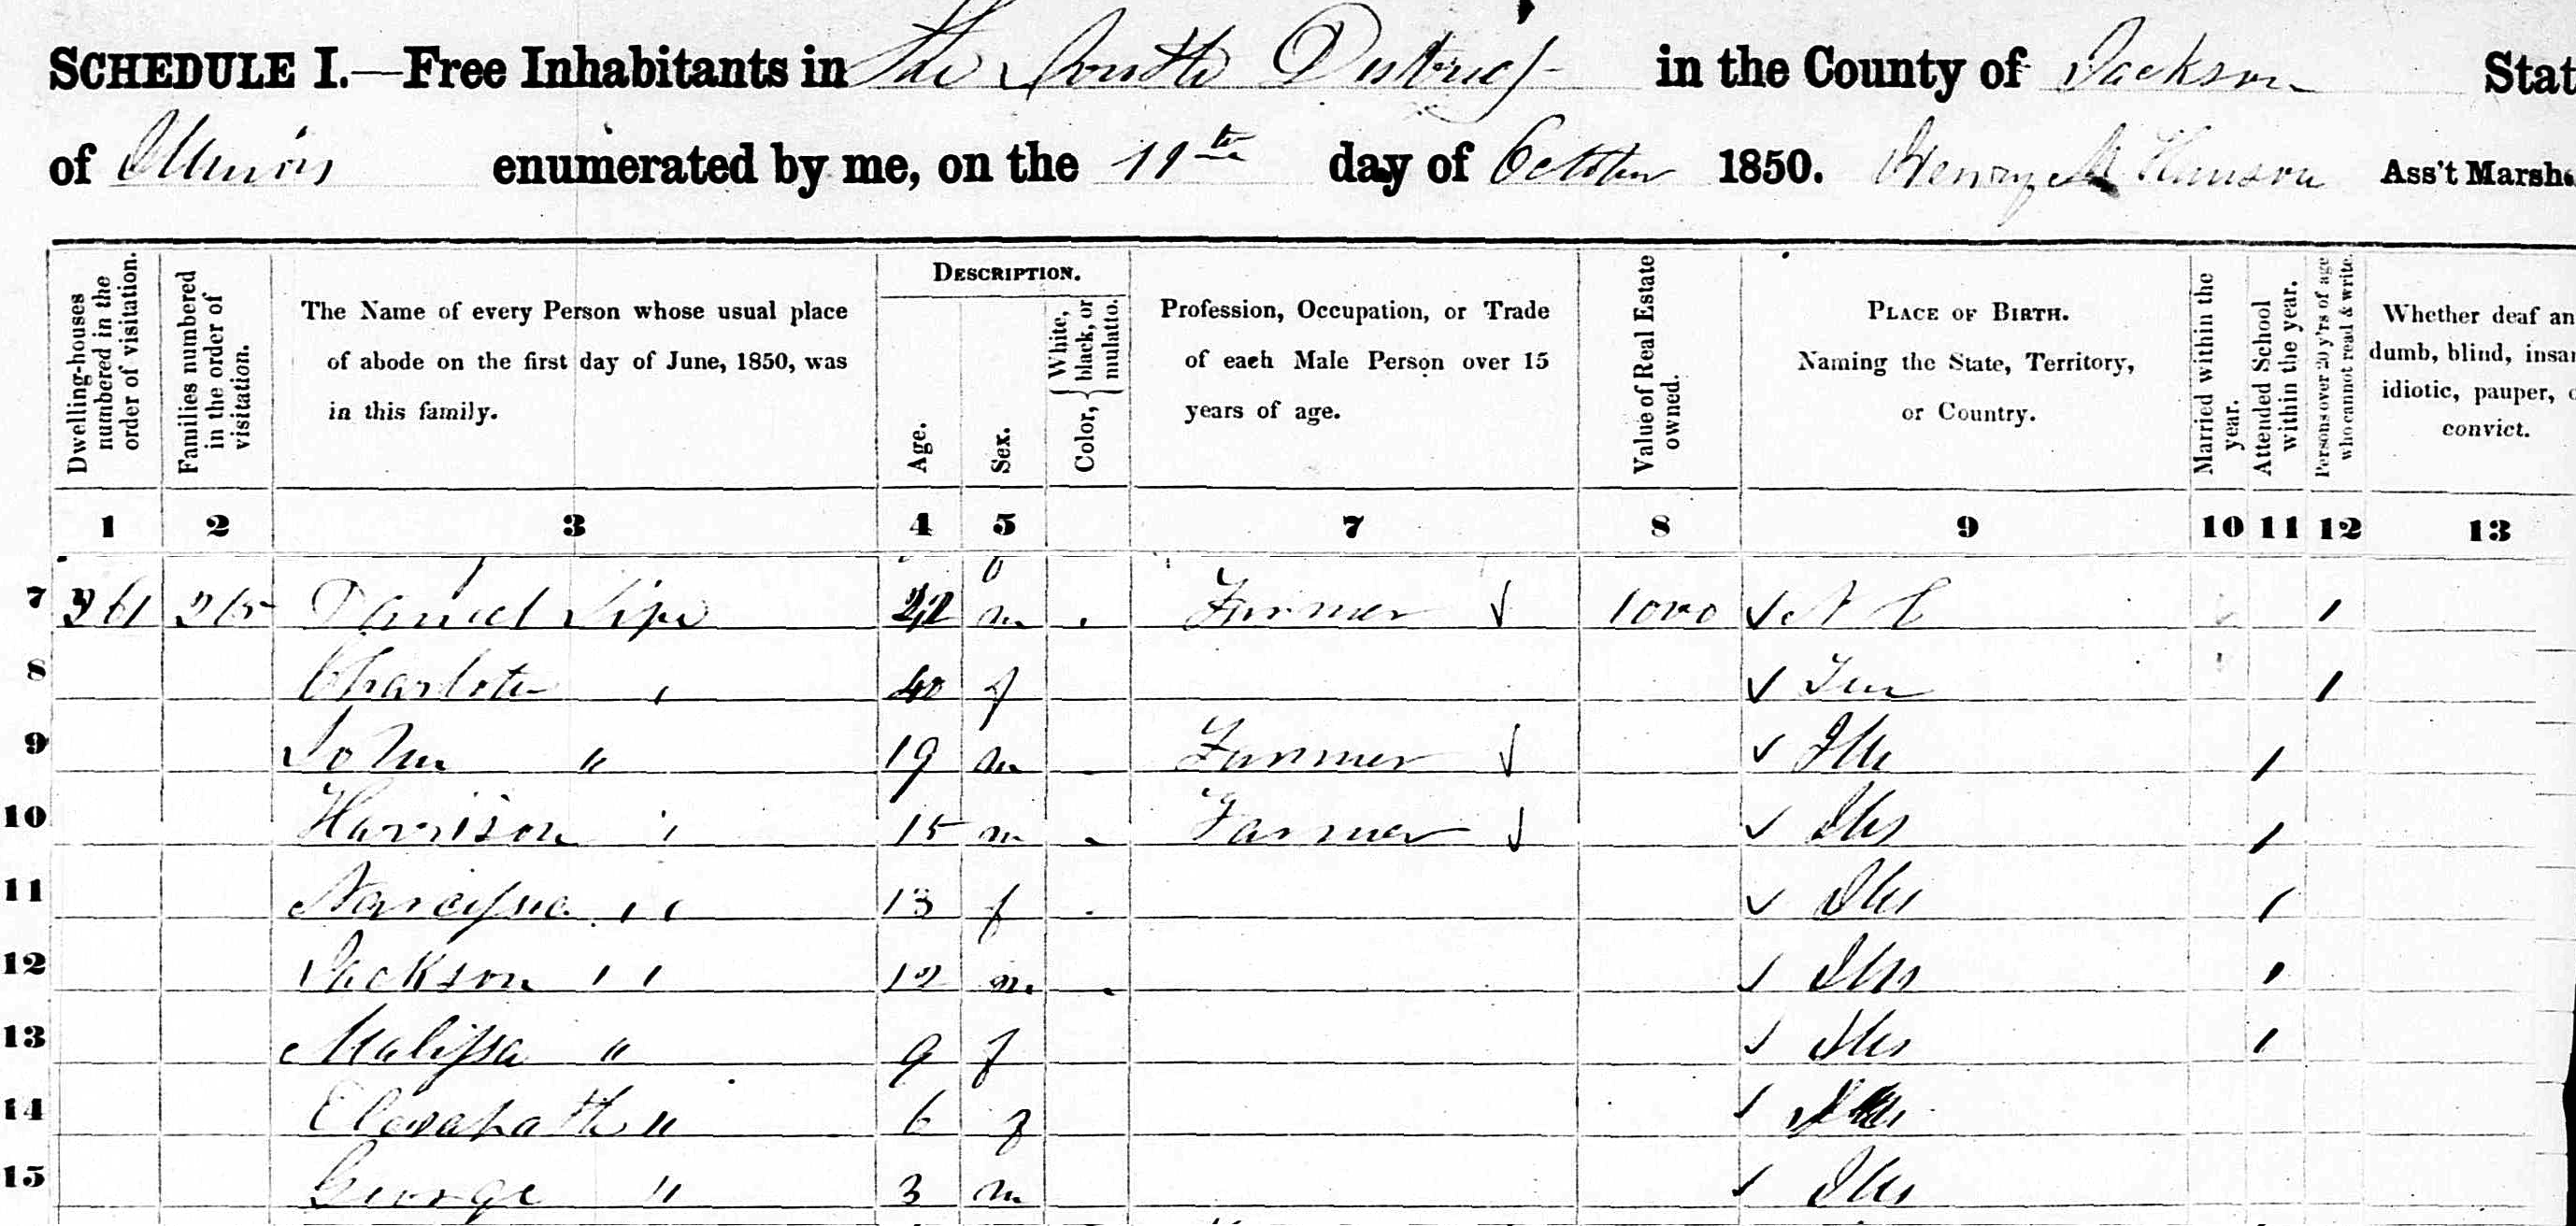 SCHEDULE I.—Free Inhabitants in The South District in the County of Jackson Stat
of Illinois enumerated by me, on the 11th day of October 1850. Henry Ass't Marsha
Dwelling-houses numbered in the order of visitation.
Families numbered in the order of visitation.
The Name of every Person whose usual place of abode on the first day of June, 1850, was in this family.
DESCRIPTION.
Age.
Sex.
Color, { White, black, or mulatto.
Profession, Occupation, or Trade of each Male Person over 15 years of age.
Value of Real Estate owned.
PLACE OF BIRTH. Naming the State, Territory, or Country.
Married within the year.
Attended School within the year.
Persons over 20 y'rs of age who cannot read & write.
Whether deaf an dumb, blind, insa idiotic, pauper, o convict.
1 2 3 4 5 7 8 9 10 11 12 13
7 361 365 Daniel Lipe m Farmer 1000 N C 1
8 Charlote " 40 f Ten 1
9 John " 19 m Farmer Ills 1
10 Harrison " 15 m Farmer Ills 1
11 Narcissa " 13 f Ills 1
12 Jackson " 12 m Ills 1
13 Malissa " 9 f Ills 1
14 " 6 f Ills
15 George " 3 m Ills